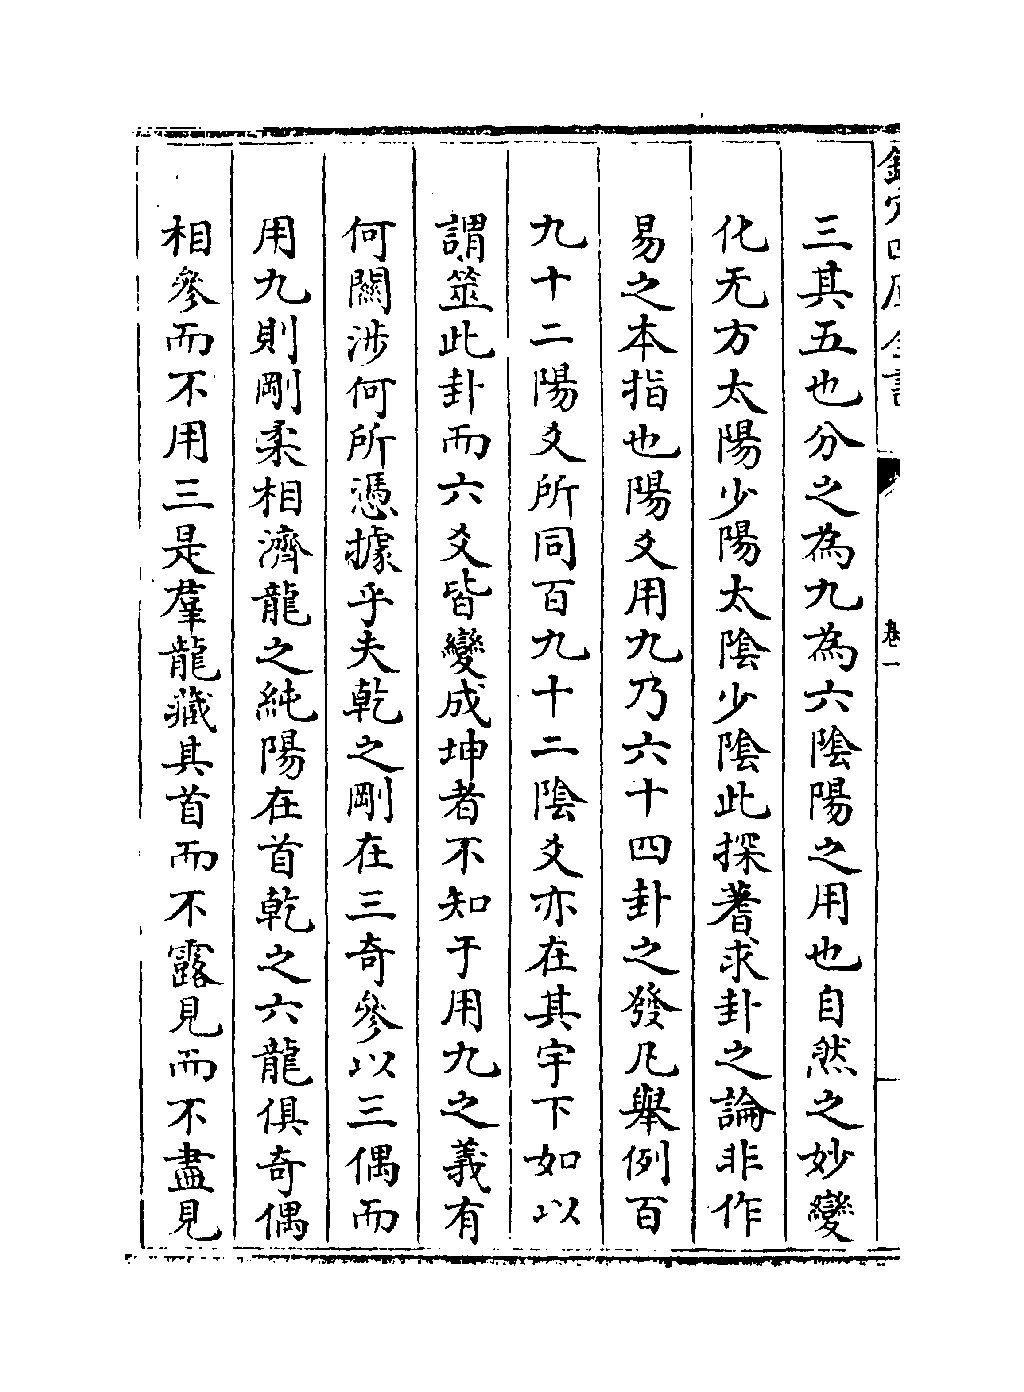 三其五也分之為九為六陰陽之用也自然之妙變
化无方太陽少陽太陰少陰此探蓍求卦之論非作
易之本指也陽爻用九乃六十四卦之發凡舉例百
九十二陽爻所同百九十二陰爻亦在其宇下如以
謂筮此卦而六爻皆變成坤者不知于用九之義有
何關涉何所憑據乎夫乾之剛在三奇參以三偶而
用九則剛柔相濟龍之純陽在首乾之六龍俱奇偶
相參而不用三是羣龍藏其首而不露見而不盡見
卷一